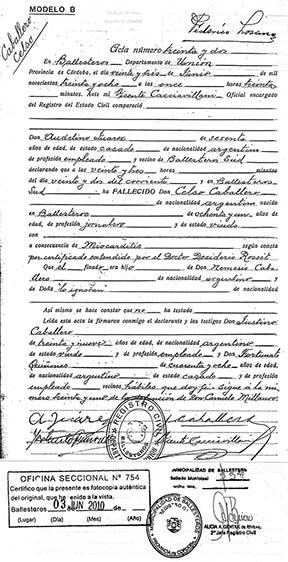 MODELO B
Federico
Caballero
Celso
Acta número treinta y dos
En Ballesteros Departamento de Unión
Provincia de Córdoba, el veinte y tres de Junio de mil
novecientos treinta y ocho a las once horas treinta
minutos. Ante mi Vicente Cacciavillani Oficial encargado
del Registro del Estado Civil compareció
Don Audelino Suarez de sesenta
años de edad, de estado casado de nacionalidad argentina
de profesión empleado y vecino de Ballesteros Sud
declarando que a las veinte y tres horas minutos
del día veinte y dos del corriente en Ballesteros
Sud ha FALLECIDO Don Celso Caballero
de nacionalidad argentino nacido
en Ballesteros de ochenta y un años de
edad, de profesión jornalero y de estado viudo con
a consecuencia de Miocarditis según consta
por certificado extendido por el Doctor Desiderio Rossit
Que el finado era hijo de Don Nemesio Caba-
llero de nacionalidad argentino y
de Doña "lo ignoran" de nacionalidad
Así mismo se hace constar que no ha testado
Leida esta acta la firmaron conmigo el declarante y los testigos Don Justino
Caballero
de treinta y nueve años de edad, de nacionalidad argentino
de estado viudo y de profesión empleado y Don Fortunato
Quiñones de cuarenta y ocho años de edad,
de nacionalidad argentino de estado casado y de profesión
empleado vecinos hábiles que doy fe. Sigue a la nú-
mero treinta y uno de la defunción de Don Camilo
A. Suarez
J. Caballero
Vicente Cacciavillani
REGISTRO CIVIL
OFICINA SECCIONAL Nº 754
Certifico que la presente es fotocopia autentica
del original, que he tenido a la vista.
Ballesteros 03 JUN 2010
(Lugar) (Dia) (Mes) (Año)
MUNICIPALIDAD DE BALLESTEROS
Sellado Municipal
MUNICIPALIDAD DE BALLESTEROS
REGISTRO CIVIL
PROVINCIA DE CORDOBA
ALICIA A.
2ª Jefe Registro Civil